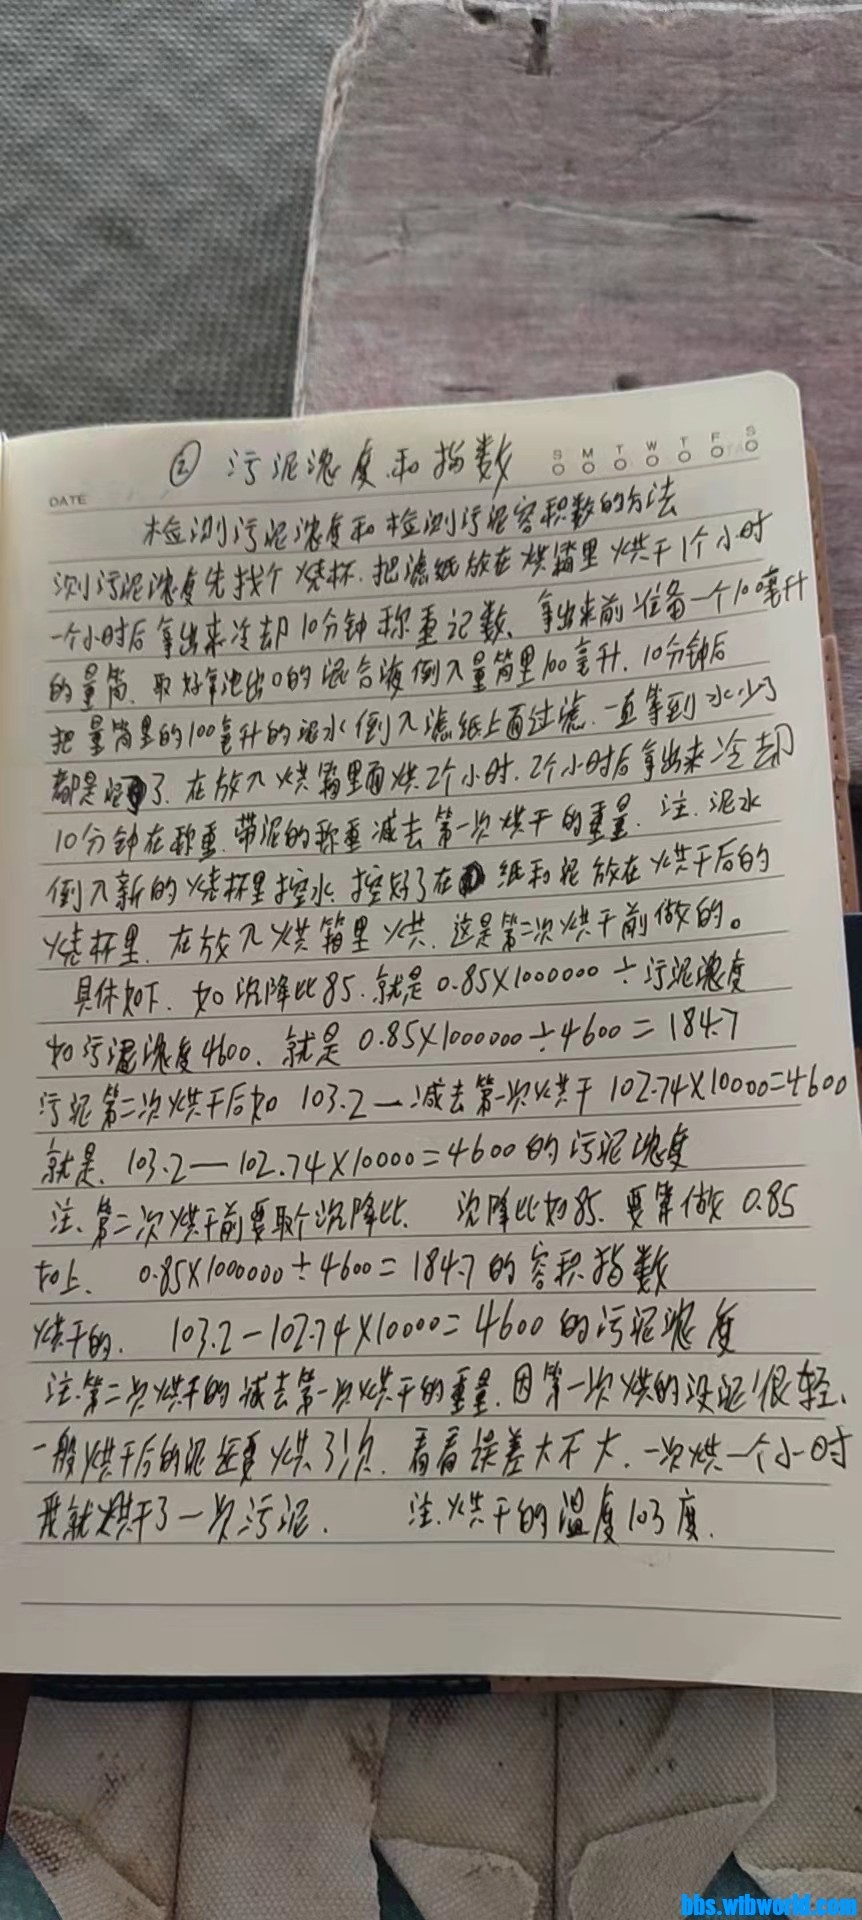 ② 污泥浓度和指数
S M T W T F S
DATE
检测污泥浓度和检测污泥容积数的方法
测污泥浓度先找个烧杯.把滤纸放在烘箱里烘干1个小时
一个小时后拿出来冷却10分钟称重记数、拿出来前准备一个100毫升
的量筒、取好氧池出口的混合液倒入量筒里100毫升.10分钟后
把量筒里的100毫升的泥水倒入滤纸上面过滤.一直等到水少了
都是泥了.在放入烘箱里面烘2个小时.2个小时后拿出来冷却
10分钟在称重.带泥的称重减去第一次烘干的重量.注.泥水
倒入新的烧杯里控水.控好了在 纸和泥放在烘干后的
烧杯里.在放入烘箱里烘.这是第二次烘干前做的。
具体如下.如沉降比85.就是0.85×1000000÷污泥浓度
如污泥浓度4600.就是0.85×1000000÷4600=184.7
污泥第二次烘干后如 103.2—减去第一次烘干102.74×10000=4600
就是.103.2—102.74×10000=4600的污泥浓度
注、第二次烘干前要取个沉降比. 沉降比如85.要算做0.85
如上. 0.85×1000000÷4600=184.7的容积指数
烘干的. 103.2-102.74×10000=4600的污泥浓度
注.第二次烘干的减去第一次烘干的重量.因第一次烘的没泥很轻、
一般烘干后的泥还要烘3次.看看误差大不大.一次烘一个小时
我就烘干了一次污泥. 注.烘干的温度103度.
bbs.wibworld.com